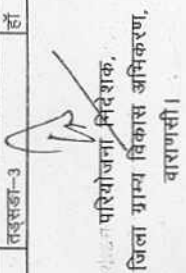 तड़सडा-3 हाँ
परियोजना निदेशक,
जिला ग्राम्य विकास अभिकरण,
वाराणसी।